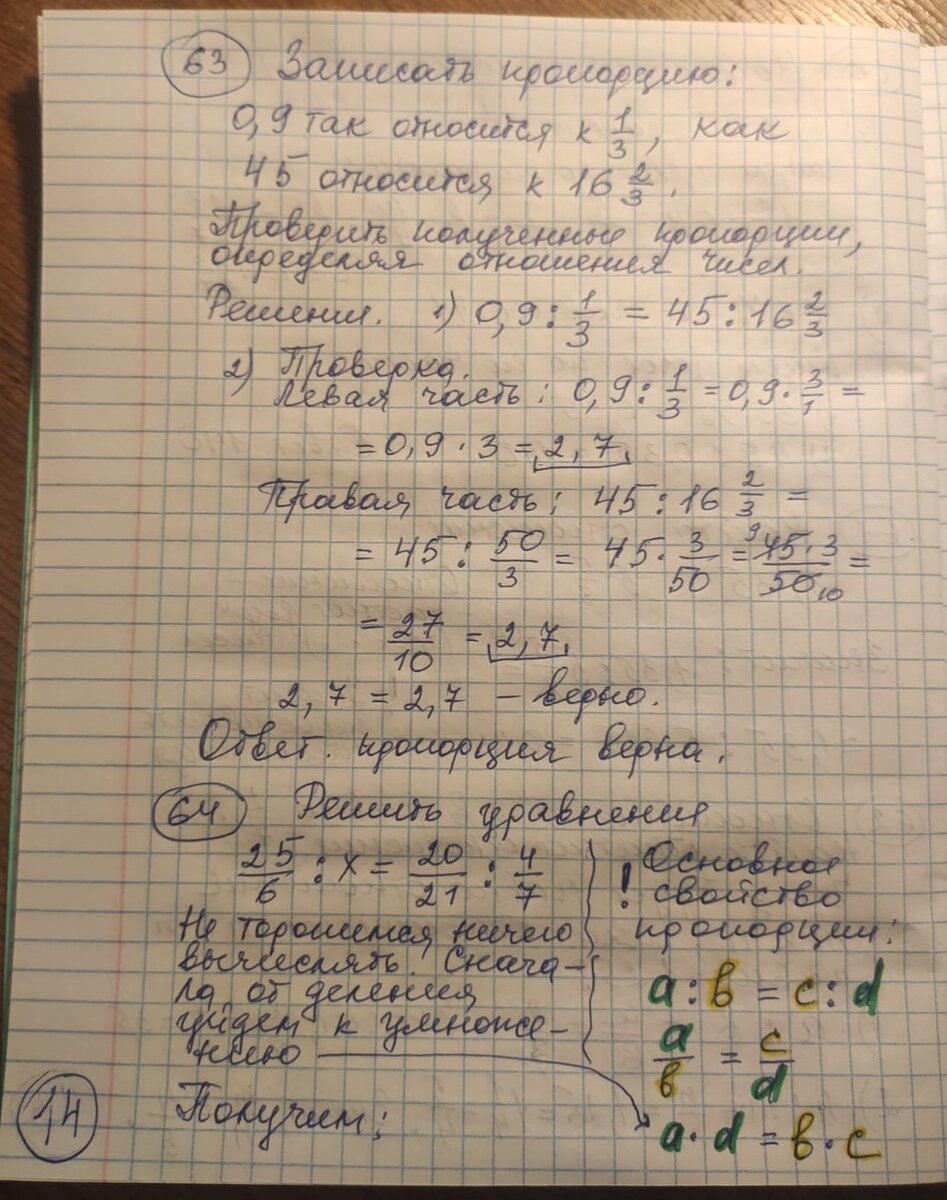 63 Записать пропорцию:
0,9 так относится к 1/3, как
45 относится к 16 2/3.
Проверить полученные пропорции,
определяя отношения чисел.
Решения. 1) 0,9 : 1/3 = 45 : 16 2/3
2) Проверка.
Левая часть: 0,9 : 1/3 = 0,9 · 3/1 =
= 0,9 · 3 = 2,7.
Правая часть: 45 : 16 2/3 =
= 45 : 50/3 = 45 · 3/50 = 9 45 · 3/50 10 =
= 27/10 = 2,7.
2,7 = 2,7 – верно.
Ответ. пропорция верна.
64 Решить уравнения
25/6 : x = 20/21 : 4/7
Не торопимся ничего
вычислять! Снача-
ла от деления
уйдем к умноже-
нию
Получим:
! Основное
свойство
пропорции:
a : b = c : d
a/b = c/d
a · d = b · c
14